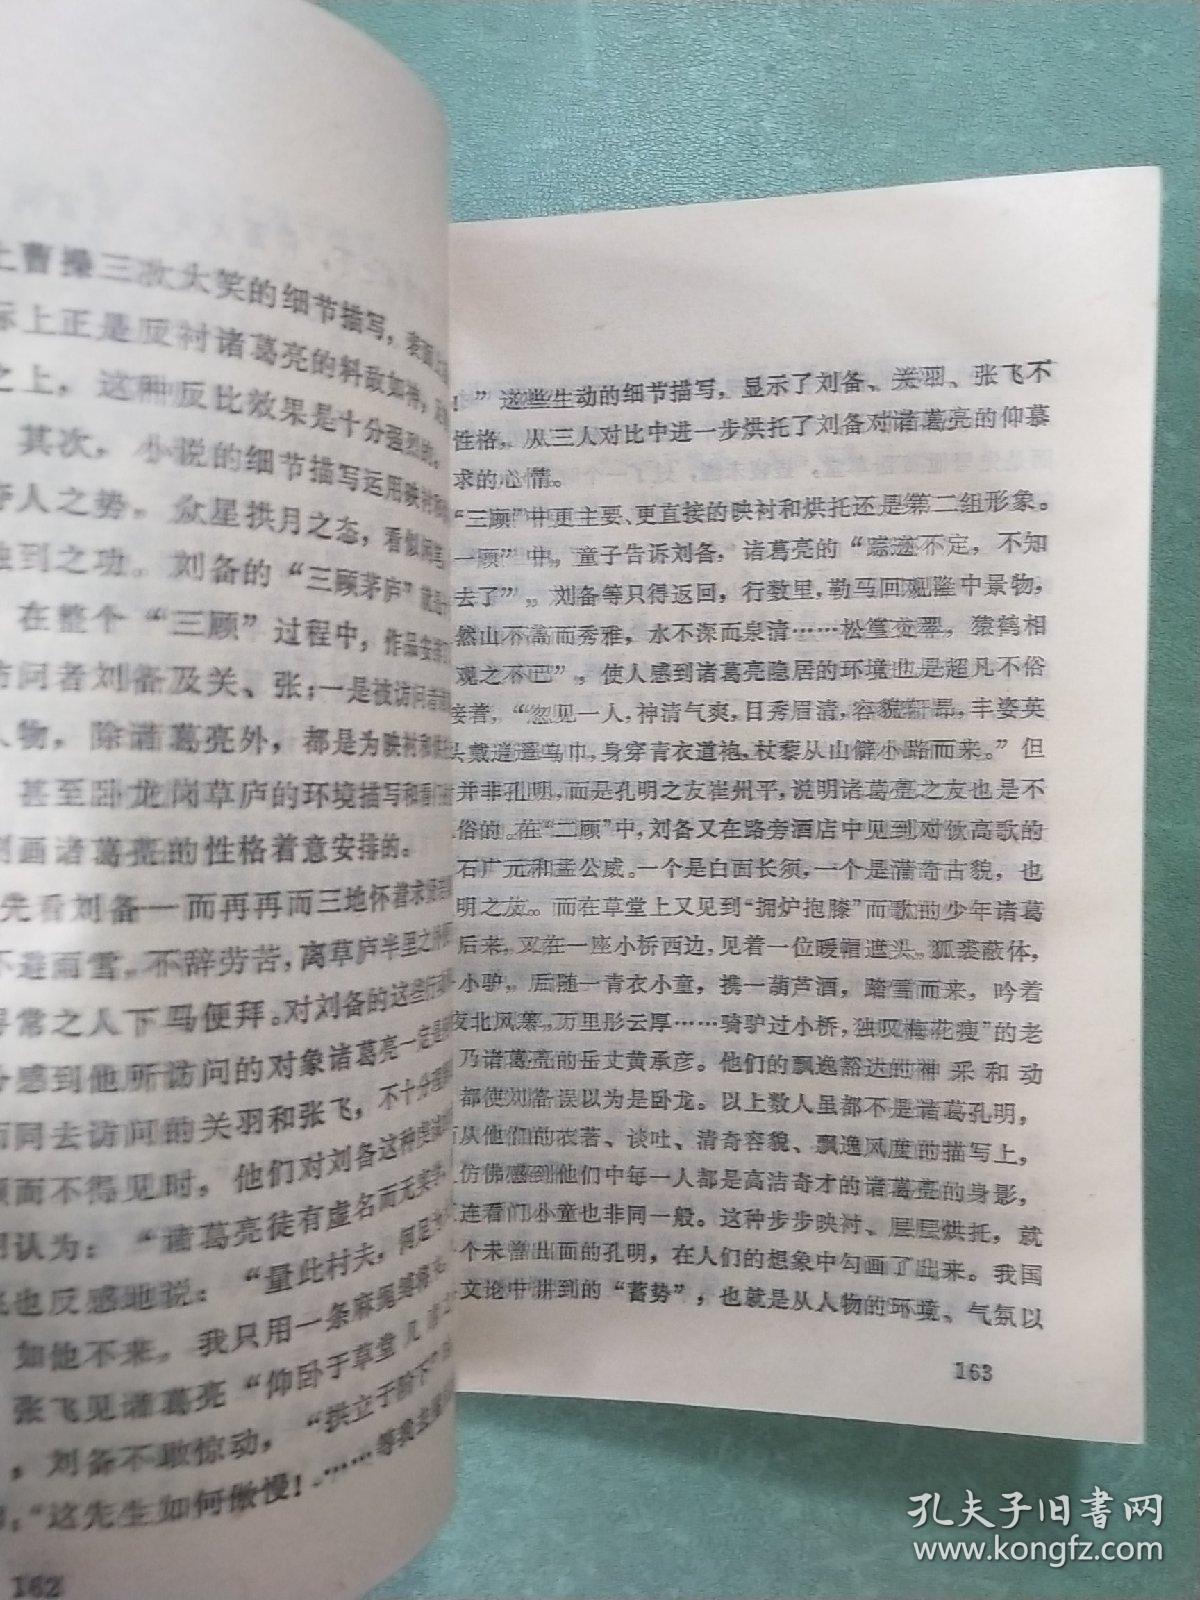 上曹操三次大笑的细节描写，表面上
际上正是反衬诸葛亮的料敌如神，
之上，这种反比效果是十分强烈的。
其次，小说的细节描写运用映衬和
夺人之势。众星拱月之态，看似闲笔
独到之功。刘备的“三顾茅庐”就是
在整个“三顾”过程中，作品安排了
访问者刘备及关、张；一是被访问者
人物，除诸葛亮外，都是为映衬和
甚至卧龙岗草庐的环境描写和看门
刻画诸葛亮的性格着意安排的。
先看刘备一而再再而三地怀着求贤
不避雨雪。不辞劳苦，离草庐半里之外
寻常之人下马便拜。对刘备的这些行
分感到他所访问的对象诸葛亮一定是
而同去访问的关羽和张飞，不十分理解
顾而不得见时，他们对刘备这种虔诚
羽认为：“诸葛亮徒有虚名而无实学
飞也反感地说：“量此村夫，何足
如他不来。我只用一条麻绳缚将
张飞见诸葛亮“仰卧于草堂几
，刘备不敢惊动，“拱立于阶下”
：“这先生如何傲慢！……等我去
162
！”这些生动的细节描写，显示了刘备、关羽、张飞不
性格。从三人对比中进一步烘托了刘备对诸葛亮的仰慕
求的心情。
“三顾”中更主要、更直接的映衬和烘托还是第二组形象。
一顾”中。童子告诉刘备，诸葛亮的“踪迹不定，不知
去了”。刘备等只得返回，行数里，勒马回观隆中景物，
然山不高而秀雅，水不深而泉清……松篁交翠，猿鹤相
观之不已”，使人感到诸葛亮隐居的环境也是超凡不俗
接着，“忽见一人，神清气爽，目秀眉清，容貌轩昂，丰姿英
头戴逍遥乌巾，身穿青衣道袍，杖藜从山僻小路而来。”但
并非孔明，而是孔明之友崔州平，说明诸葛亮之友也是不
俗的。在“二顾”中，刘备又在路旁酒店中见到对饮高歌的
石广元和孟公威。一个是白面长须，一个是清奇古貌，也
明之友。而在草堂上又见到“拥炉抱膝”而歌的少年诸葛
后来，又在一座小桥西边，见着一位暖帽遮头。狐裘蔽体，
小驴。后随一青衣小童，携一葫芦酒，踏雪而来，吟着
夜北风寒。万里彤云厚……骑驴过小桥，独叹梅花瘦”的老
乃诸葛亮的岳丈黄承彦。他们的飘逸豁达的神采和动
都使刘备误以为是卧龙。以上数人虽都不是诸葛孔明，
从他们的衣著、谈吐、清奇容貌、飘逸风度的描写上，
仿佛感到他们中每一人都是高洁奇才的诸葛亮的身影，
连看们小童也非同一般。这种步步映衬、层层烘托，就
个未曾出面的孔明，在人们的想象中勾画了出来。我国
文论中讲到的“蓄势”，也就是从人物的环境、气氛以
163
孔夫子旧书网
www.kongfz.com